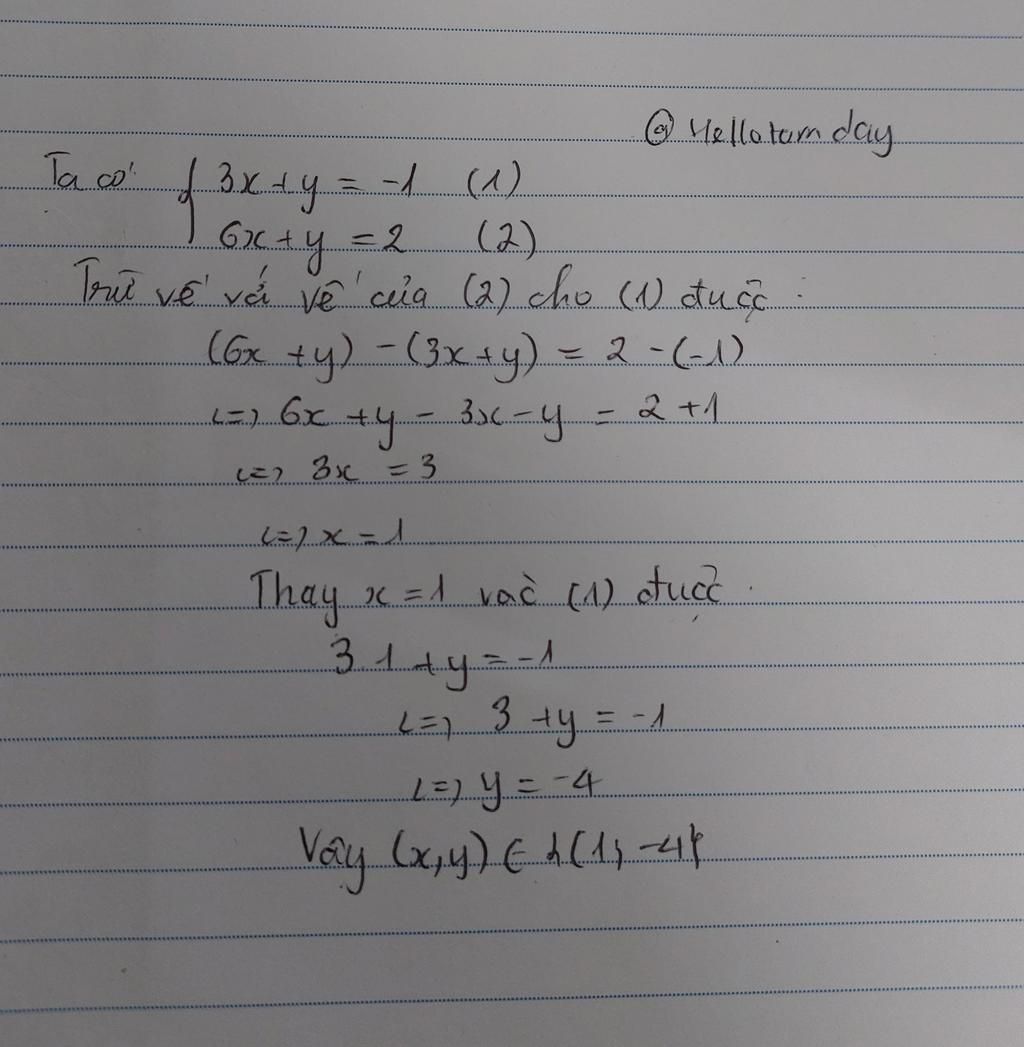 @Hellotamday
Ta có: { 3x + y = -1 (1)
6x + y = 2 (2)
Trừ vế với vế của (2) cho (1) được:
(6x + y) - (3x + y) = 2 - (-1)
<=> 6x + y - 3x - y = 2 + 1
<=> 3x = 3
<=> x = 1
Thay x = 1 vào (1) được:
3.1 + y = -1
<=> 3 + y = -1
<=> y = -4
Vậy (x,y) ∈ {(1; -4)}